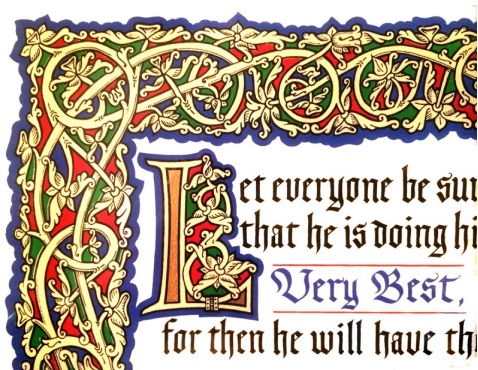 Let everyone be sur
that he is doing hi
Very Best,
for then he will have th